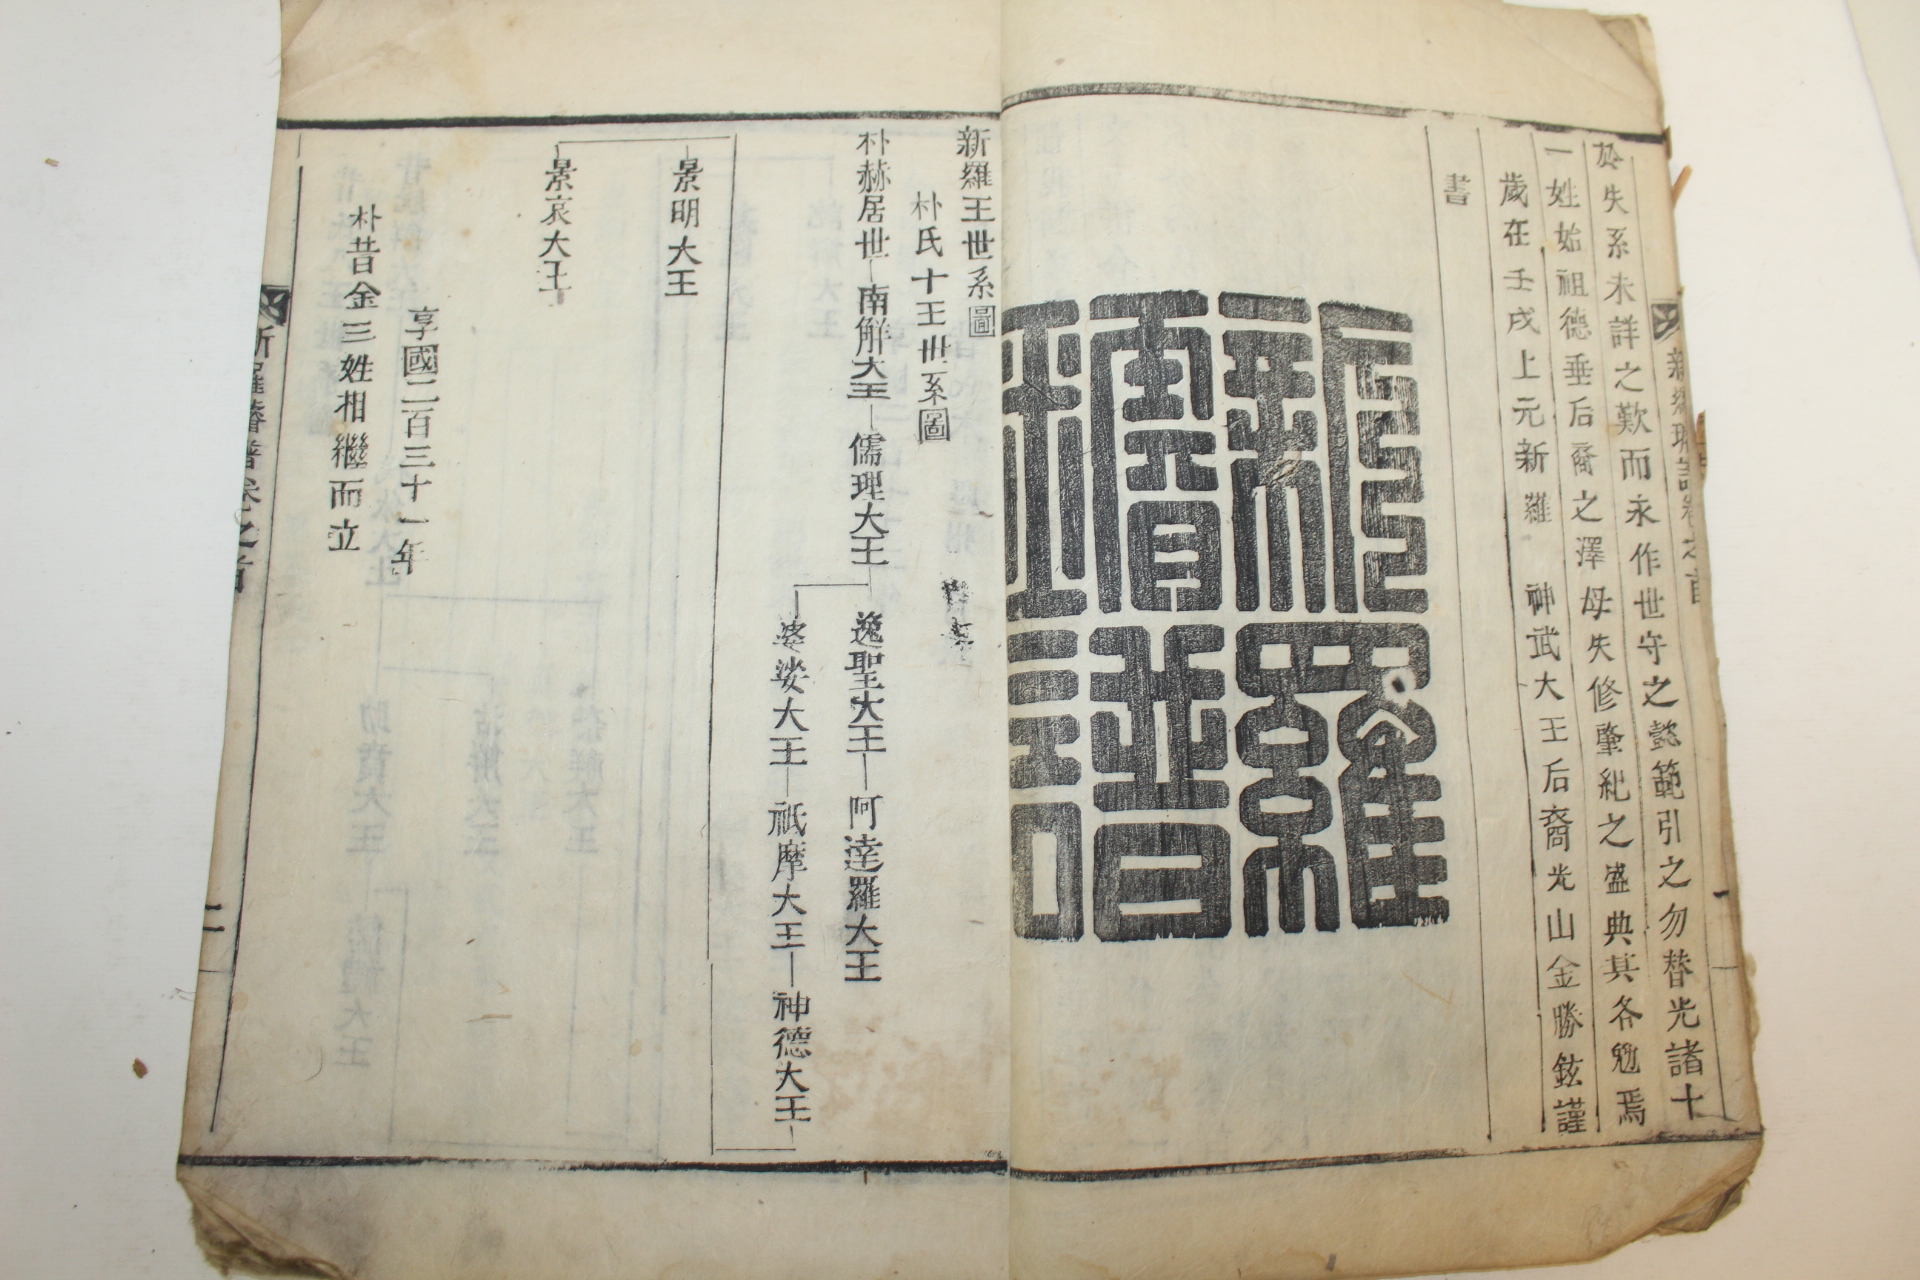 於失系未詳之歎而永作世守之懿範引之勿替光諸十
一姓始祖德垂后裔之澤母失修肇紀之盛典其各勉焉
歲在壬戌上元新羅 神武大王后裔光山金勝鉉謹
書
新羅
璿譜
新羅王世系圖
朴氏十王世系圖
朴赫居世 南解大王 儒理大王 逸聖大王 阿達羅大王
婆娑大王 祇摩大王 神德大王
景明大王
景哀大王
享國二百三十一年
朴昔金三姓相繼而立
新羅璿譜卷之首
二